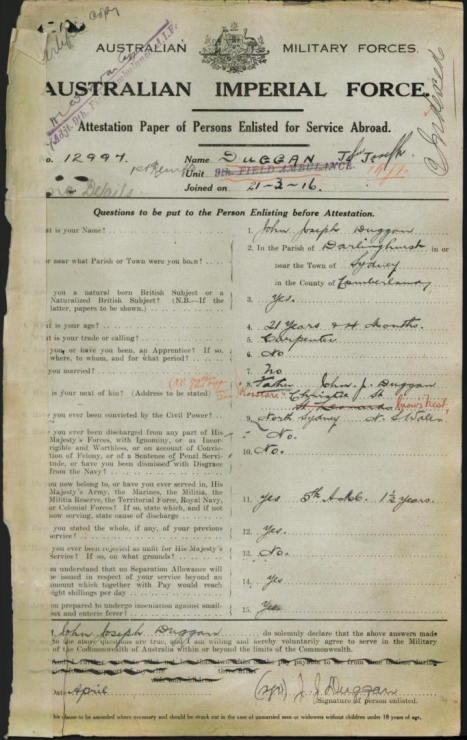 Copy
AUSTRALIAN MILITARY FORCES.
Adjt. 9th. Field Ambulance A.I.F.
AUSTRALIAN IMPERIAL FORCE.
Attestation Paper of Persons Enlisted for Service Abroad.
No. 12997. Name DUGGAN Joseph
Unit 9th. FIELD AMBULANCE
Joined on 21-3-16.
Questions to be put to the Person Enlisting before Attestation.
at is your Name? 1. John Joseph Duggan
2. In the Parish of Darlinghurst in or
or near what Parish or Town were you born? near the Town of Sydney
in the County of Cumberland
you a natural born British Subject or a
Naturalized British Subject? (N.B.—If the 3. Yes.
latter, papers to be shown.)
at is your age? 4. 21 Years & 4 Months.
at is your trade or calling? 5. Carpenter
you or have you been, an Apprentice? If so, 6. No
where, to whom, and for what period?
you married? 7. No
8. Father John J. Duggan
is your next of kin? (Address to be stated) Christie St
St Leonards Crows Nest,
you ever been convicted by the Civil Power? 9. North Sydney N. S. Wales
you ever been discharged from any part of His No.
Majesty's Forces, with Ignominy, or as Incor-
rigible and Worthless, or on account of Convic- 10. No.
tion of Felony, or of a Sentence of Penal Servi-
tude, or have you been dismissed with Disgrace
from the Navy?
you now belong to, or have you ever served in, His
Majesty's Army, the Marines, the Militia, the
Militia Reserve, the Territorial Force, Royal Navy, 11. Yes 5th 1½ Years.
or Colonial Forces? If so, state which, and if not
now serving, state cause of discharge
you stated the whole, if any, of your previous 12. Yes.
service?
you ever been rejected as unfit for His Majesty's 13. No.
Service? If so, on what grounds?
you understand that no Separation Allowance will
be issued in respect of your service beyond an 14. Yes
amount which together with Pay would reach
eight shillings per day
you prepared to undergo inoculation against small-
pox and enteric fever? 15. Yes
I John Joseph Duggan do solemnly declare that the above answers made
to the above questions are true, and I am willing and hereby voluntarily agree to serve in the Military
of the Commonwealth of Australia within or beyond the limits of the Commonwealth.
Date April (sgd) J. J. Duggan
Signature of person enlisted.
This clause to be amended where necessary and should be struck out in the case of unmarried men or widowers without children under 18 years of age.